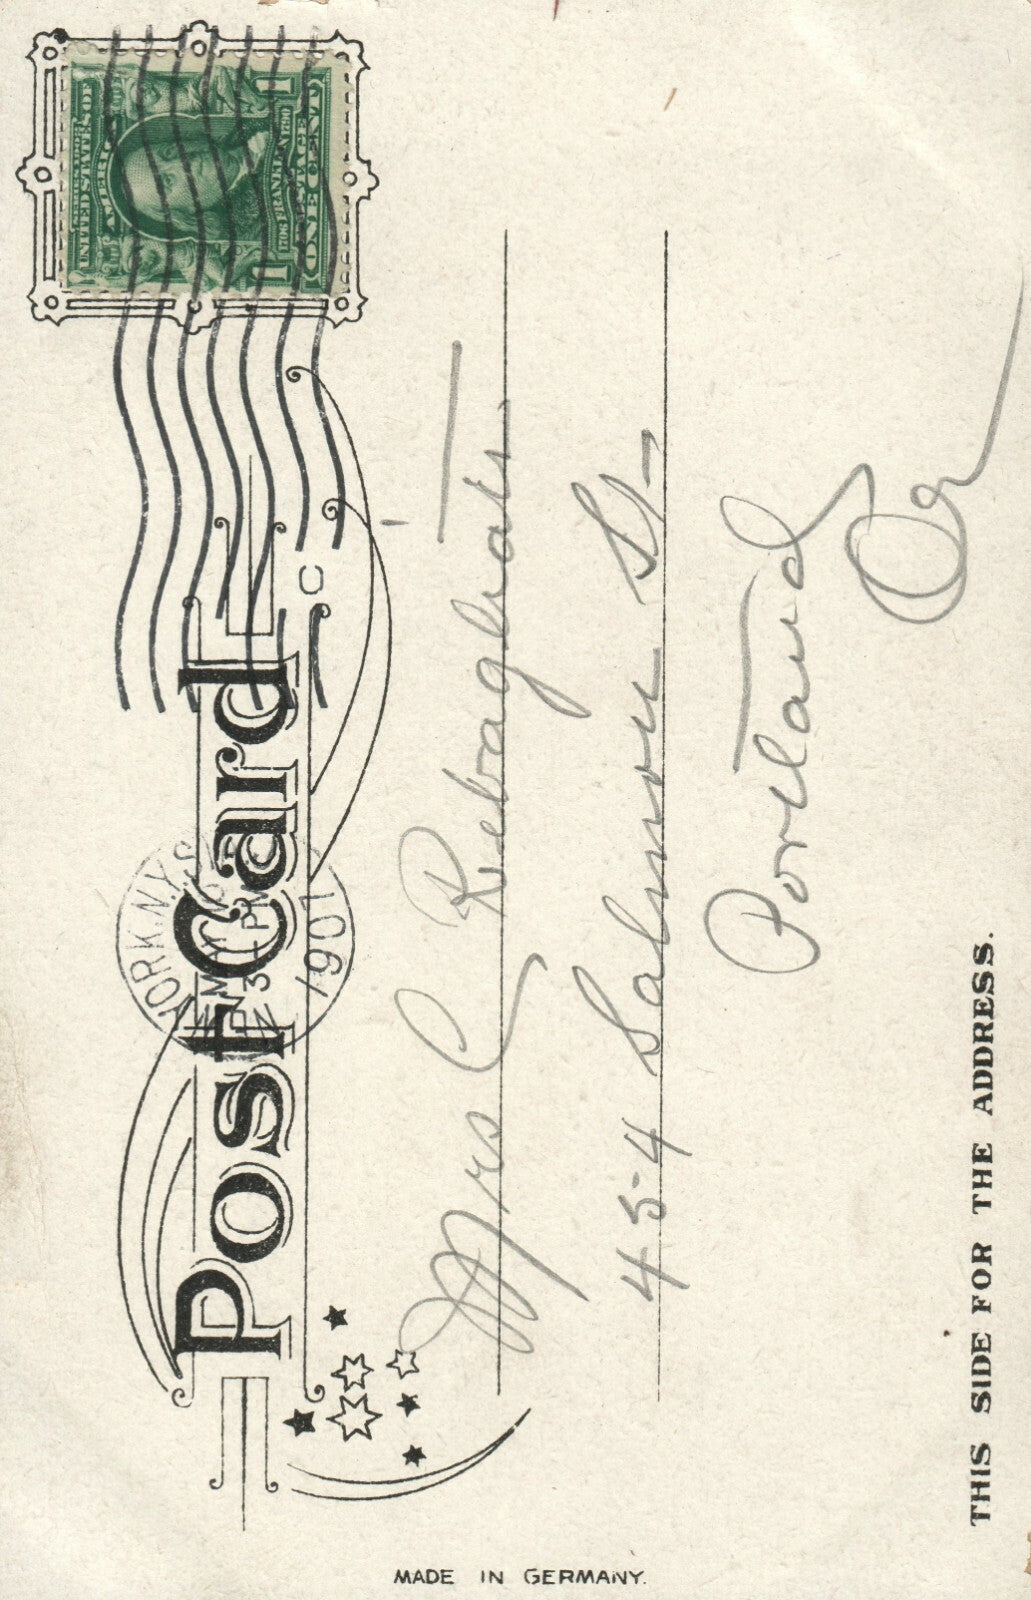 Post Card
SERIES 1902
UNITED STATES OF
AMERICA
1706 FRANKLIN 1790
POSTAGE
1 1
ONE CENT
YORK, N.Y. S
3 - PM
1907
C
Mrs C
454 Salmon St-
Portland
Or
THIS SIDE FOR THE ADDRESS.
MADE IN GERMANY.